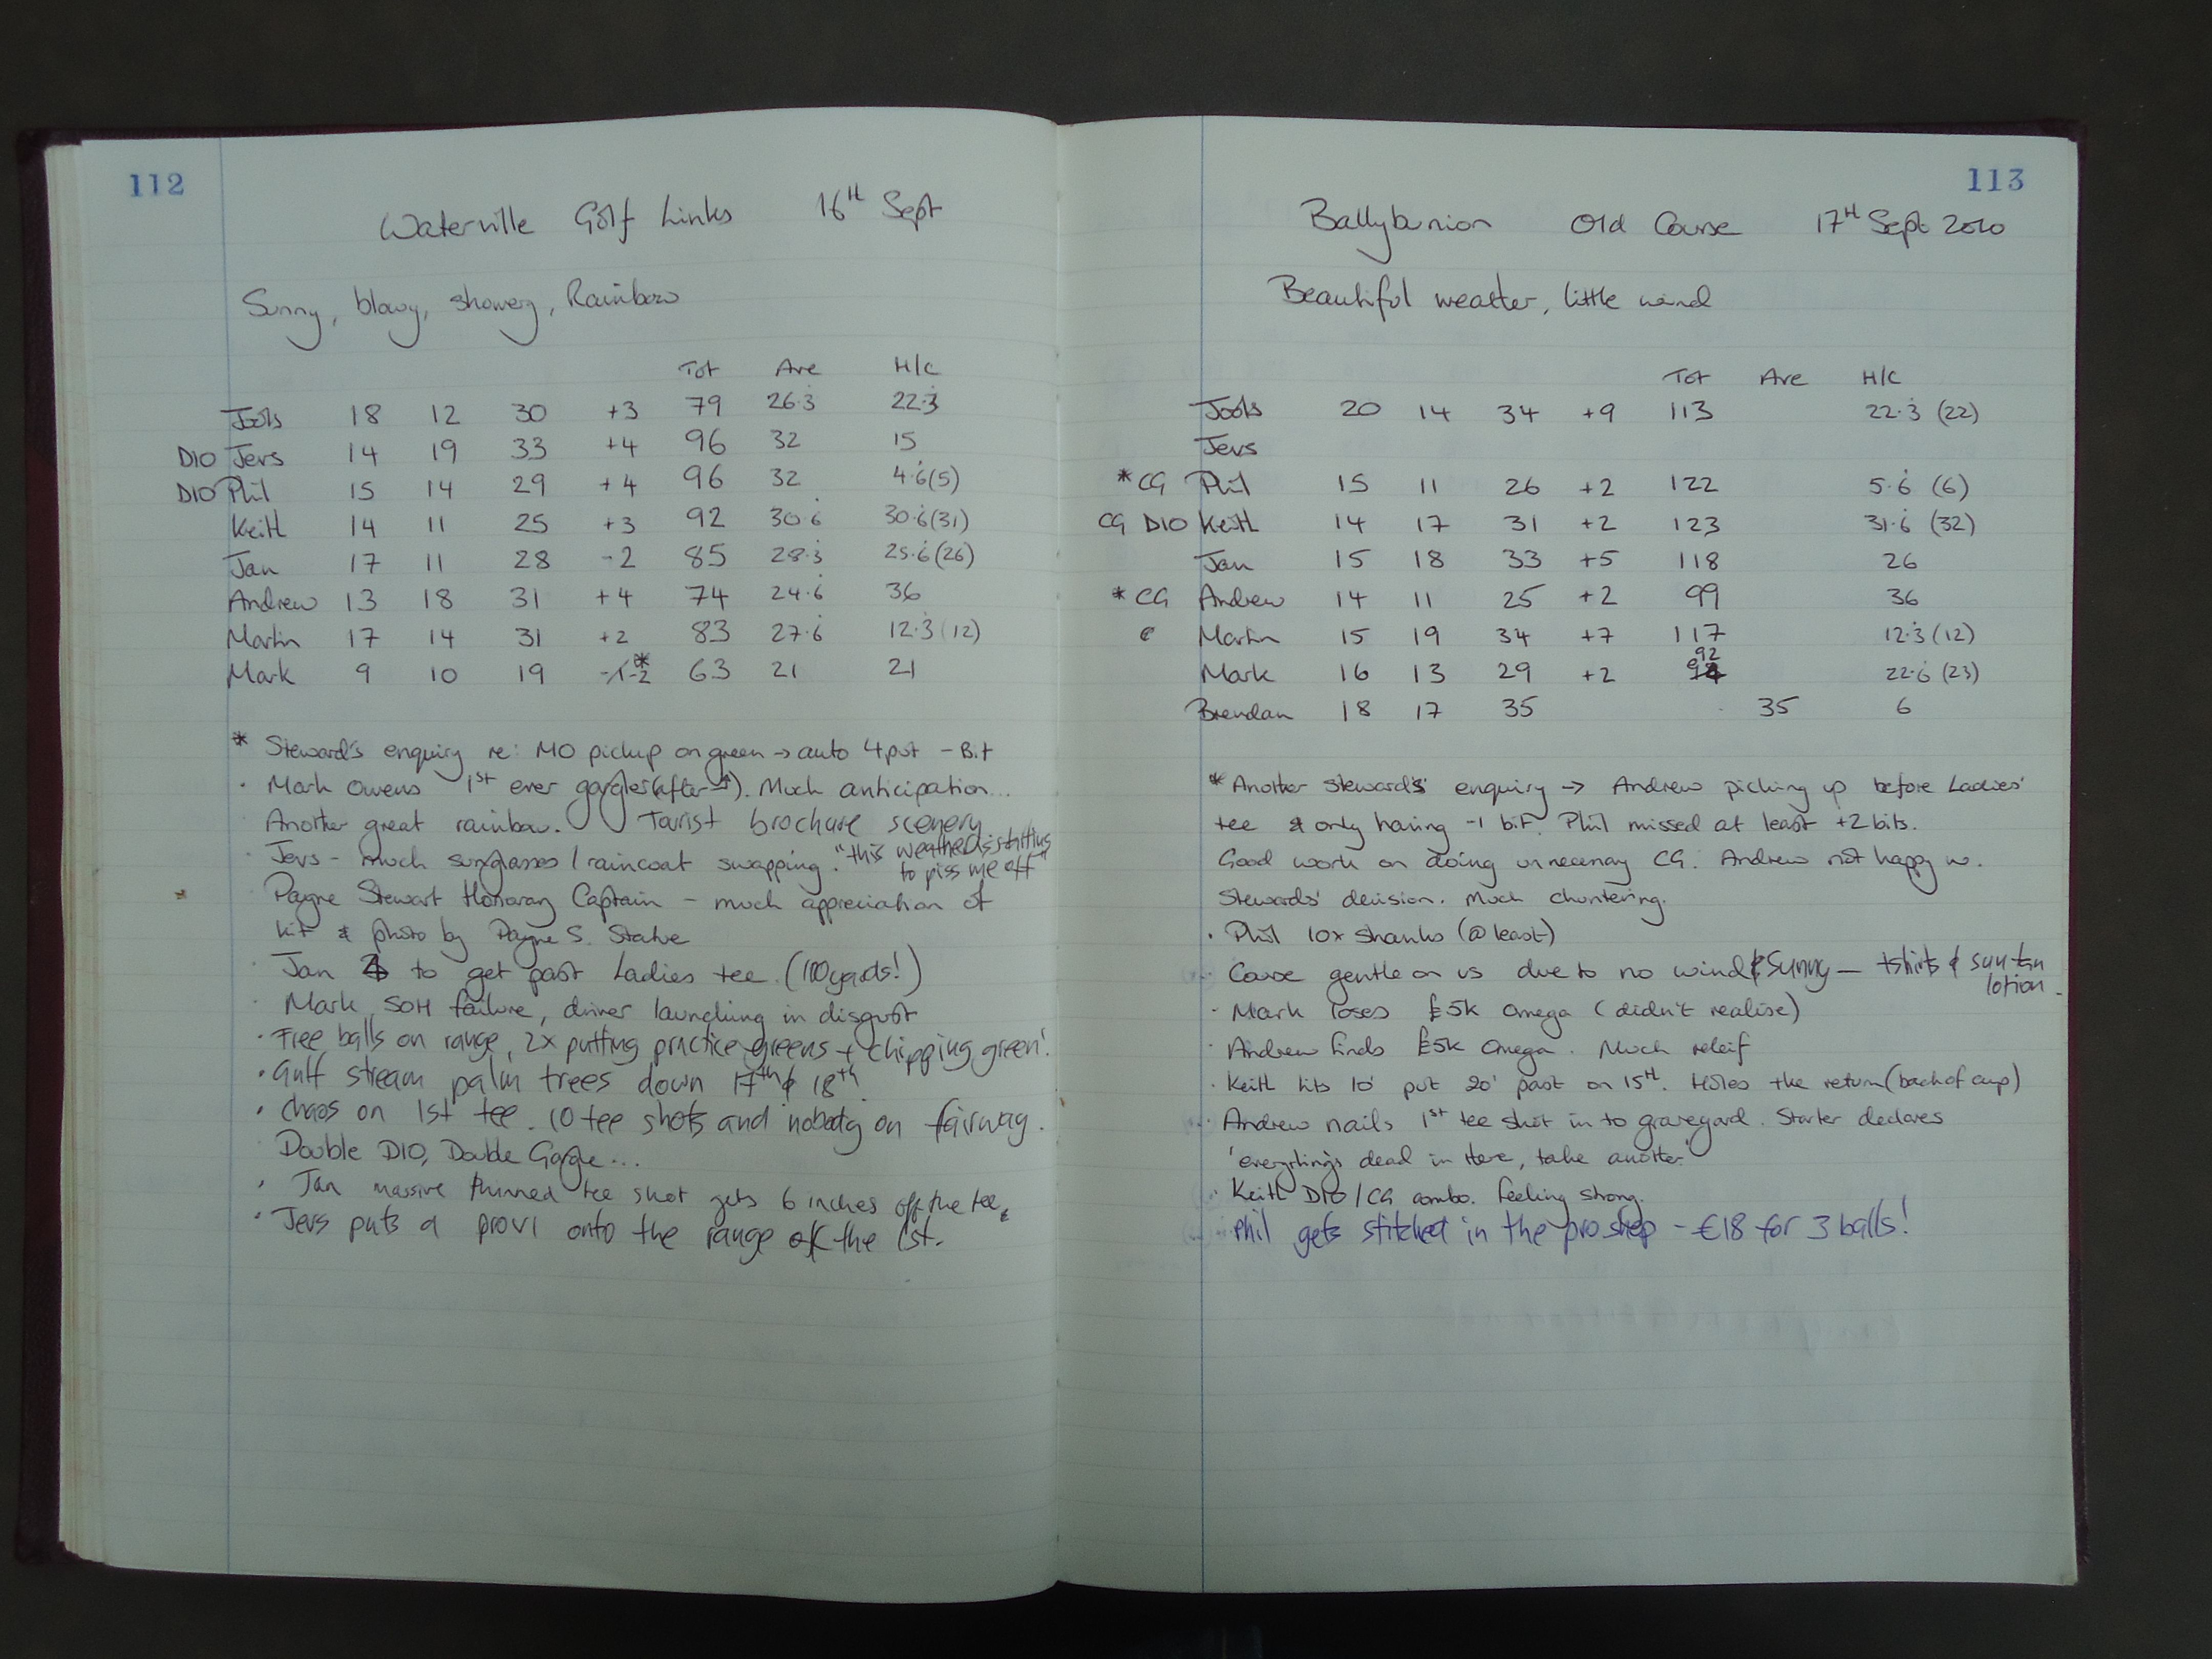 112
Waterville Golf Links 16th Sept
Sunny, blowy, showery, Rainbow
Tot Ave H/C
Jools 18 12 30 +3 79 26.3 22.3
D10 Jevs 14 19 33 +4 96 32 15
D10 Phil 15 14 29 +4 96 32 4.6(5)
Keith 14 11 25 +3 92 30.6 30.6(31)
Jan 17 11 28 -2 85 28.3 25.6(26)
Andrew 13 18 31 +4 74 24.6 36
Martin 17 14 31 +2 83 27.6 12.3(12)
Mark 9 10 19 -2* 63 21 21
* Steward's enquiry re: MO pickup on green → auto 4put - Bit
· Mark Owens 1st ever gargler(after). Much anticipation...
Another great rainbow. Tourist brochure scenery
· Jevs - much sunglasses / raincoat swapping. "this weather is starting
to piss me off"
Payne Stewart Honarary Captain - much appreciation of
kit & photo by Payne S. Statue
· Jan to get past Ladies tee. (100yards!)
· Mark SOH failure, driver launching in disgust
· Free balls on range, 2x putting practice greens + chipping green!
· Gulf stream palm trees down 17th & 18th.
· chaos on 1st tee. 10 tee shots and nobody on fairway.
Double D10, Double Gargle...
· Jan massive thinned tee shot gets 6 inches off the tee
· Jevs puts a prov1 onto the range off the 1st.
113
Ballybunion Old Course 17th Sept 2010
Beautiful weather, little wind
Tot Ave H/C
Jools 20 14 34 +9 113 22.3 (22)
Jevs
* CG Phil 15 11 26 +2 122 5.6 (6)
CG D10 Keith 14 17 31 +2 123 31.6 (32)
Jan 15 18 33 +5 118 26
* CG Andrew 14 11 25 +2 99 36
Martin 15 19 34 +7 117 12.3(12)
Mark 16 13 29 +2 92 22.6 (23)
Brendan 18 17 35 35 6
* Another Steward's enquiry → Andrew picking up before Ladies'
tee & only having -1 bit. Phil missed at least +2 bits.
Good work on doing unnecenary CG. Andrew not happy w.
Stewards' decision. Much chuntering.
· Phil 10x shanks (@ least)
· Course gentle on us due to no wind & Sunny - tshirts & suntan
lotion.
· Mark loses £5k Omega (didn't realise)
· Andrew finds £5k Omega. Much releif
· Keith hits 10' put 20' past on 15th. Holes the return (back of cup)
· Andrew nails 1st tee shot in to graveyard. Starter declares
'everythings dead in there, take another'
· Keith D10/CG combo. Feeling strong.
· Phil gets stitched in the pro shop - €18 for 3 balls!